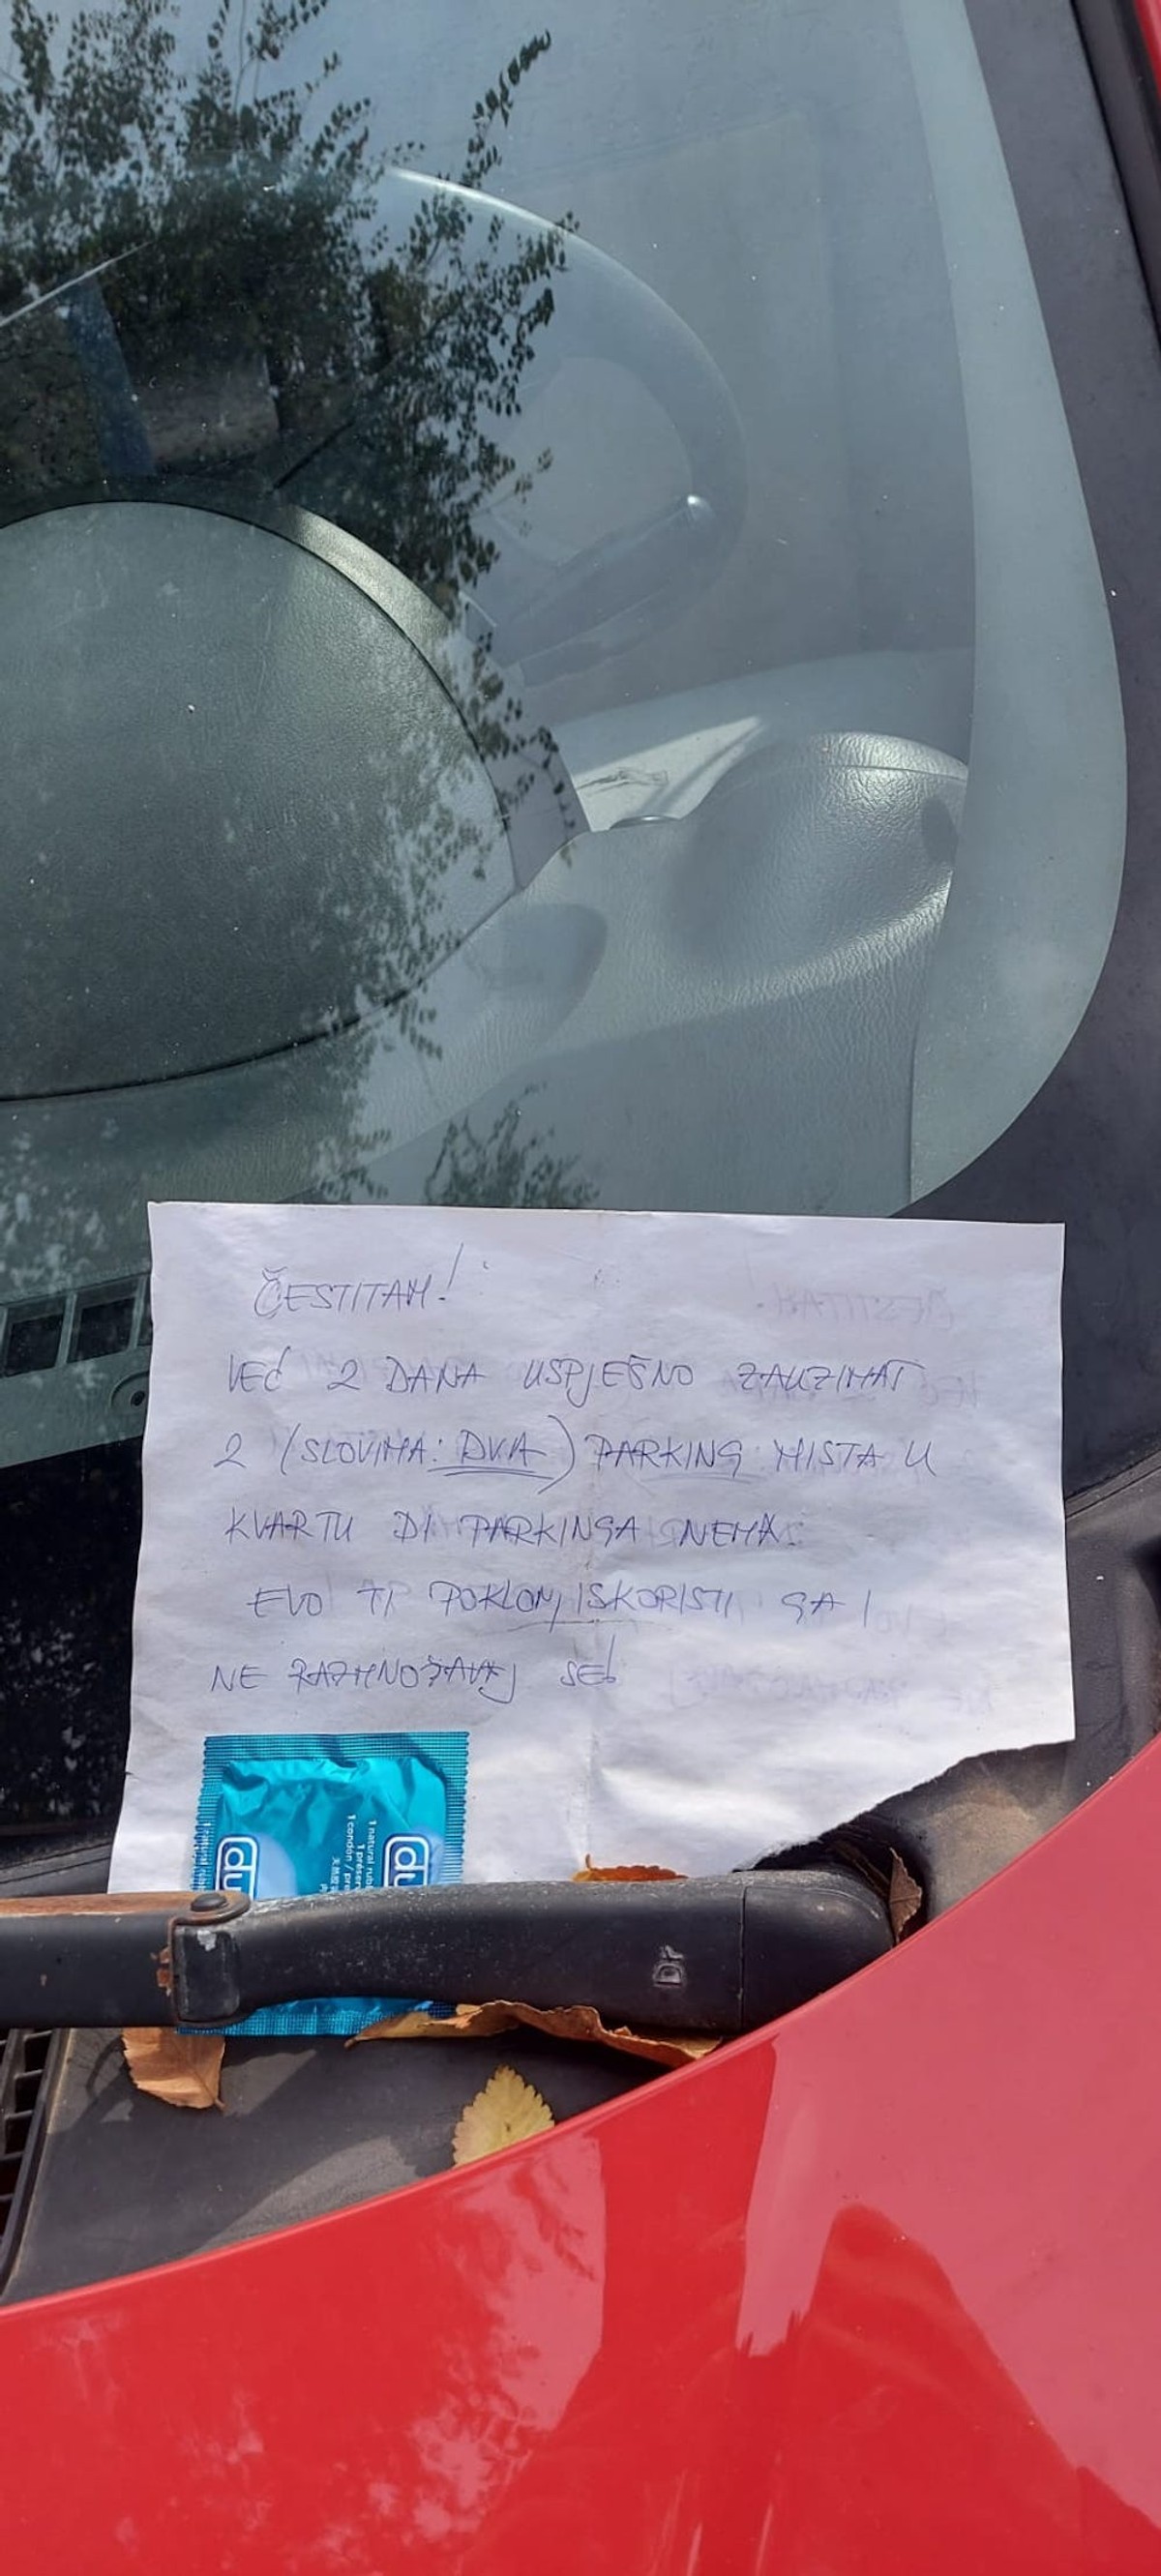 ČESTITAM!
VEĆ 2 DANA USPJEŠNO ZAUZIMAŠ
2 (SLOVIMA: DVA) PARKING MISTA U
KVARTU DI PARKINGA NEMA.
EVO TI POKLON, ISKORISTI GA I
NE RAZMNOŽAVAJ SE!
du
du
1 natural rub
1 condón / pre
DA